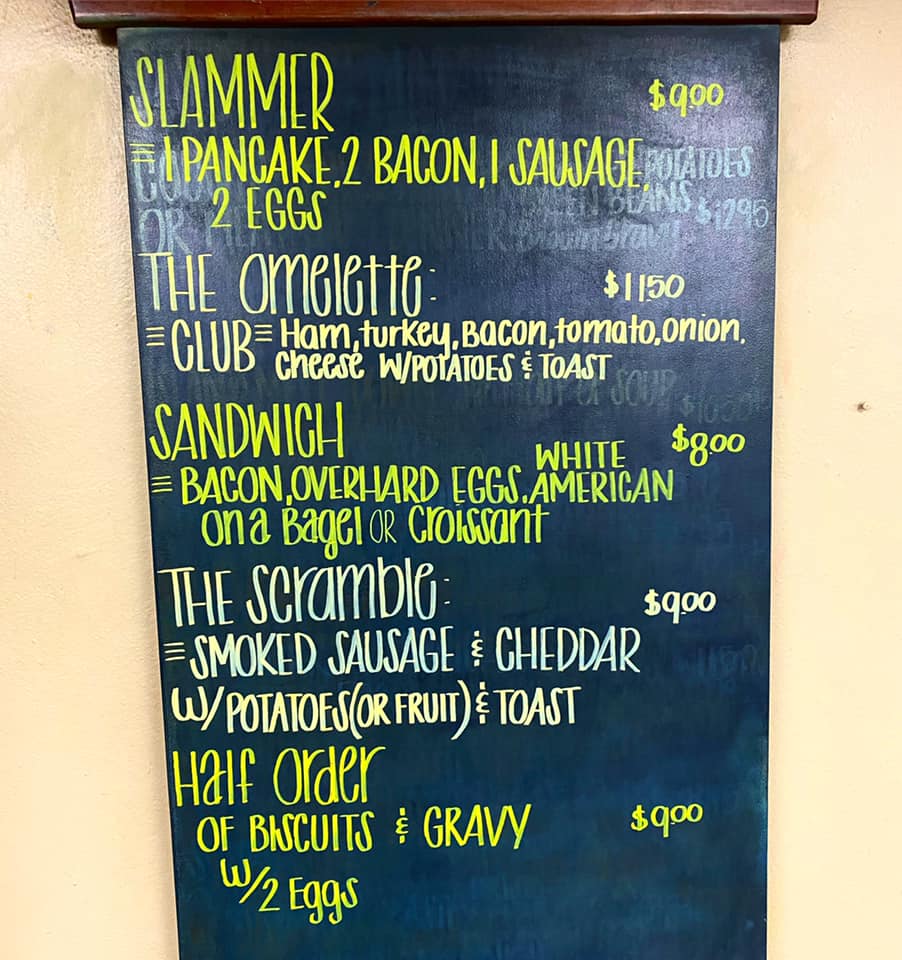 SLAMMER $9.00
≡ 1 PANCAKE, 2 BACON, 1 SAUSAGE, POTATOES
2 EGGS
BEANS $12.95
OR
THE Omelette: $11.50
≡ CLUB ≡ Ham, turkey, Bacon, tomato, onion,
cheese W/POTATOES & TOAST
OF SOUP $10.50
SANDWICH $8.00
WHITE
≡ BACON, OVERHARD EGGS, AMERICAN
on a Bagel OR Croissant
THE Scramble: $9.00
≡ SMOKED SAUSAGE & CHEDDAR
W/ POTATOES (OR FRUIT) & TOAST
Half Order
OF BISCUITS & GRAVY $9.00
W/2 Eggs